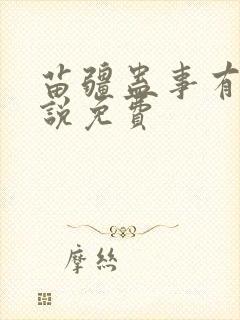 苗疆蛊事有
說免費
摩丝